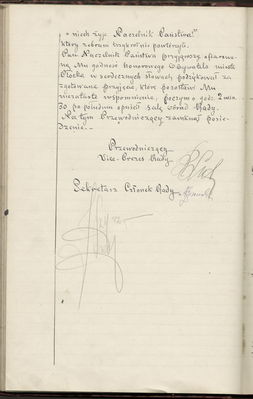 „niech żyje Naczelnik Państwa!"
który zebrani trzykrotnie powtórzyli.
Pan Naczelnik Państwa przyjąwszy ofiarowa-
ną Mu godność honorowego Obywatela miasta
Płocka w serdecznych słowach podziękował za
zgotowane przyjęcie, które pozostawi Mu
niezatarte wspomnienia, poczem o godz. 2 min.
30 po południu opuścił salę obrad Rady.
Na tym Przewodniczący zamknął posie-
dzenie.—
Przewodniczący
Vice-Prezes Rady
Sekretarz Członek Rady